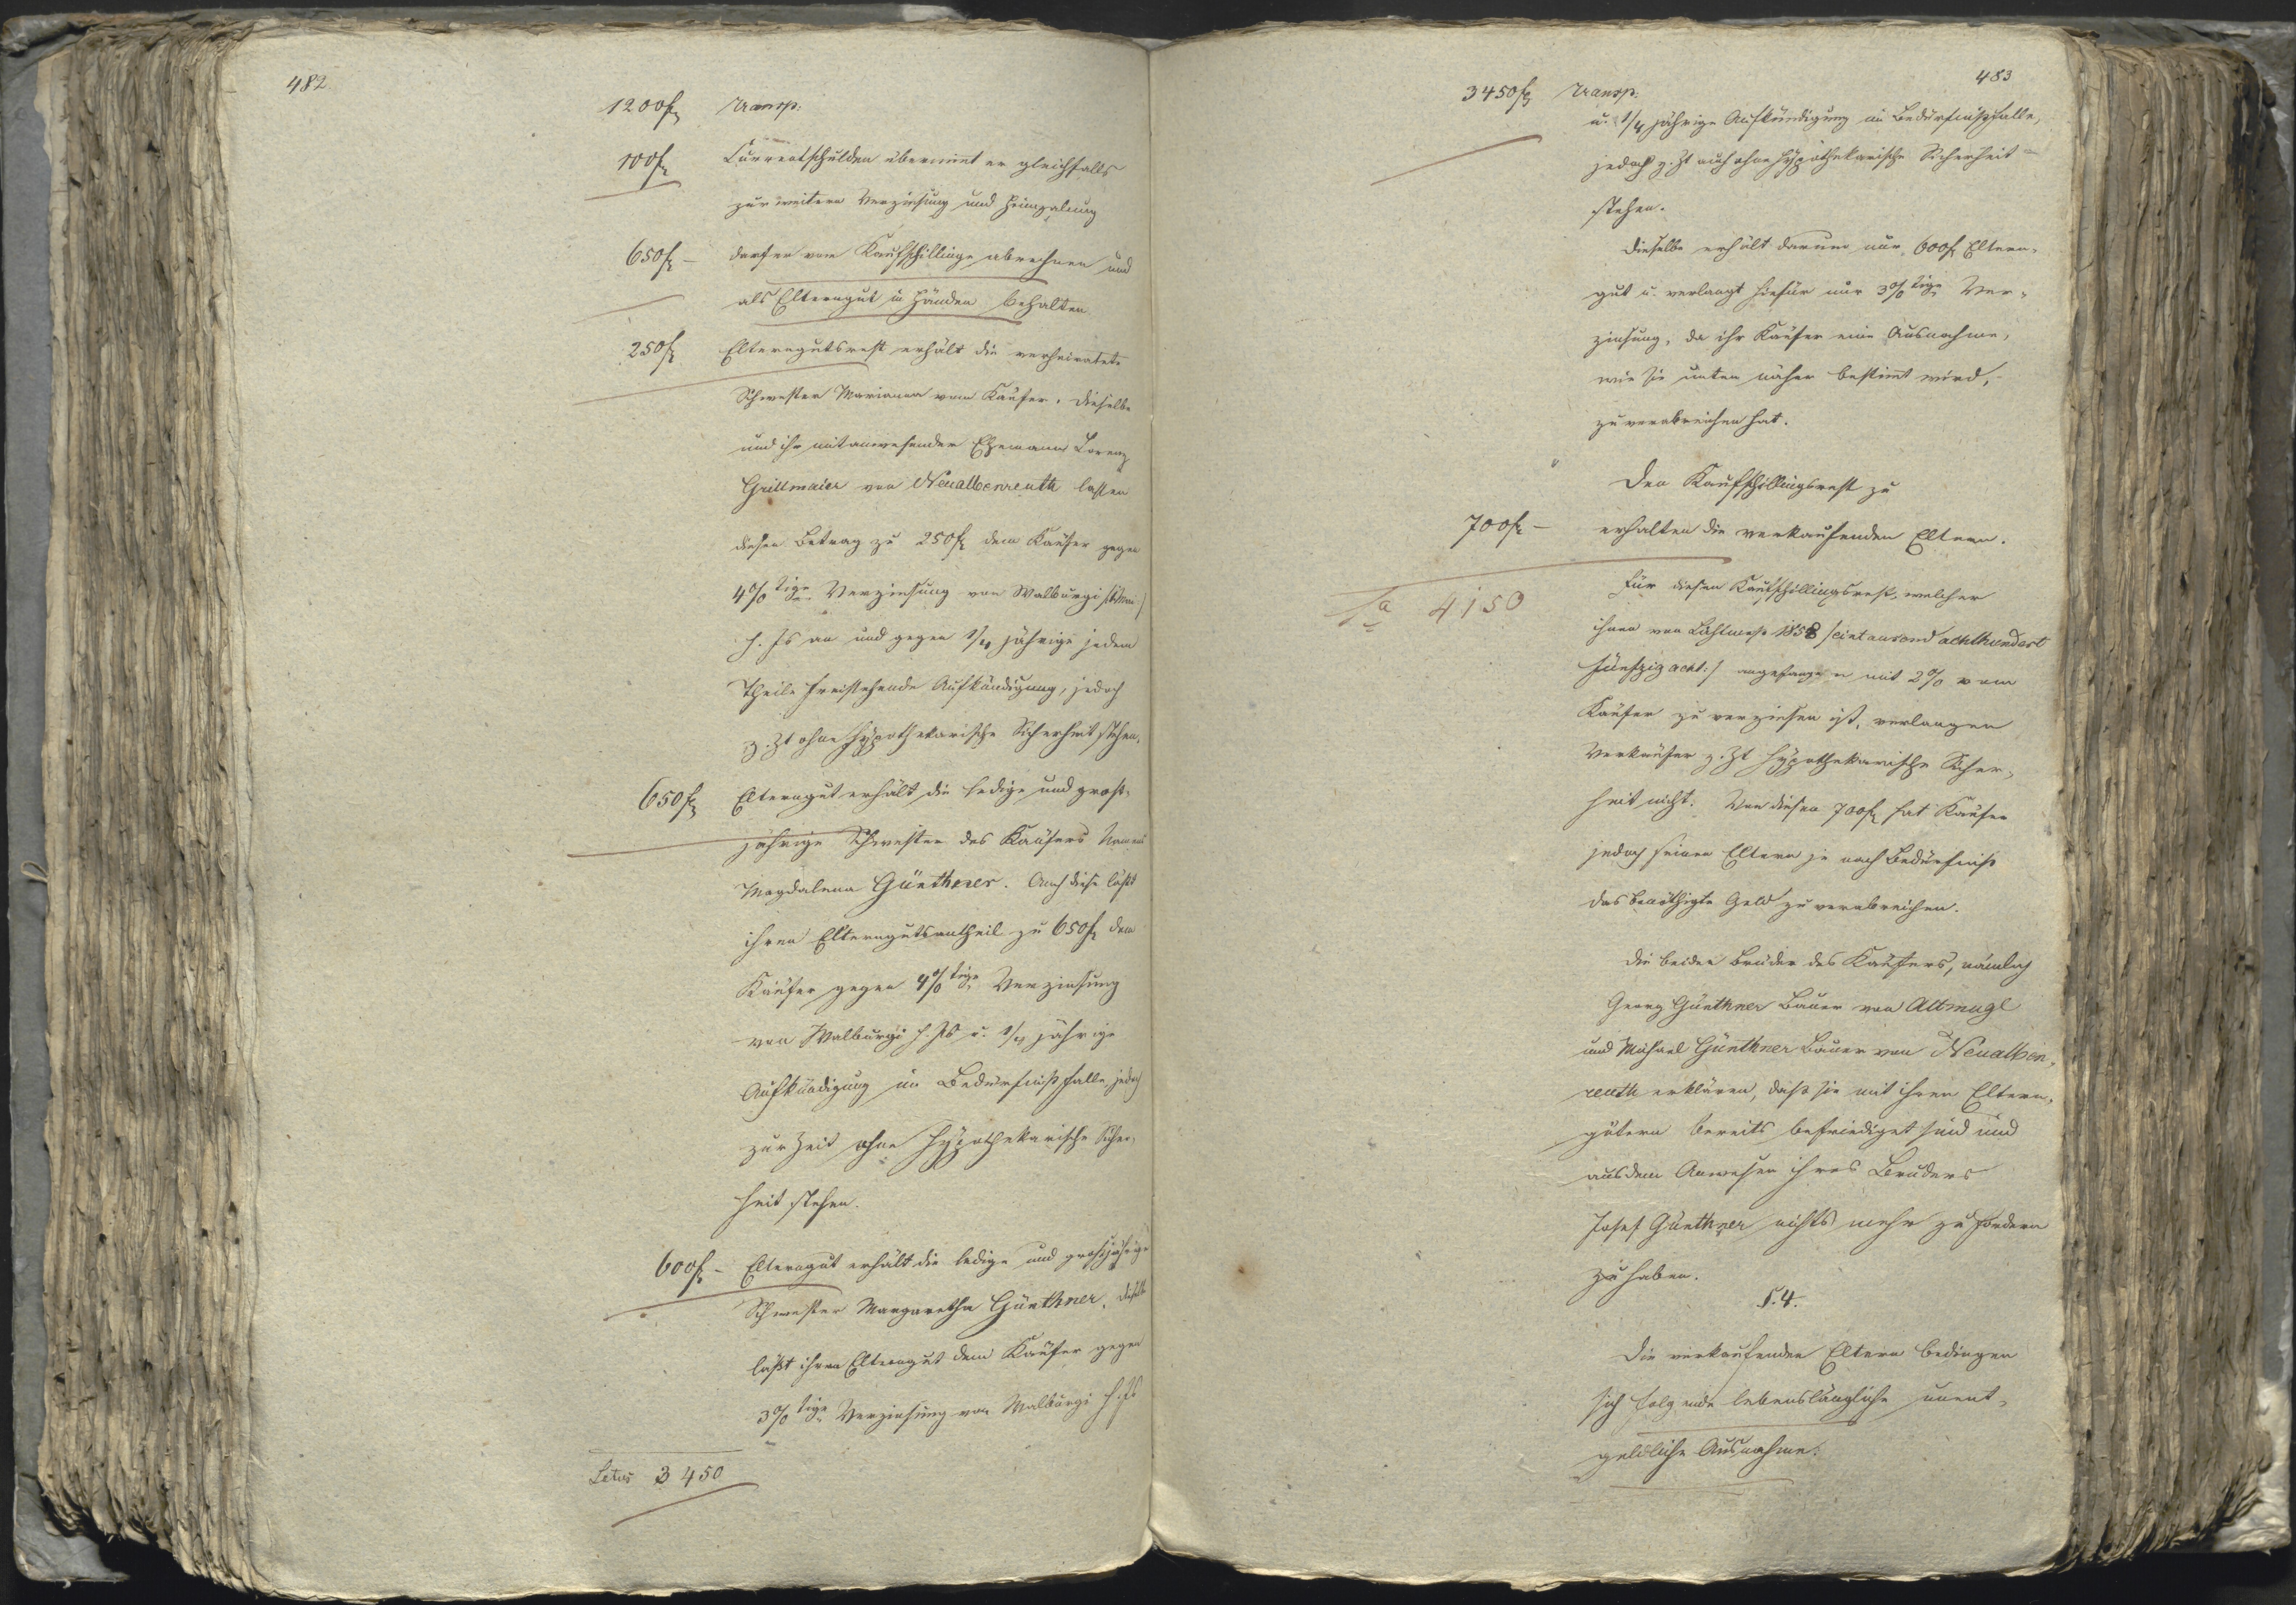 482
1200f Transp:
100f Currentschulden übernimt er gleichfalls
zur weitern Verzinsung und Heimzalung
650f – darf er vom Kaufschillinge abrechnen und
als Elterngut in Händen behalten
250f Elterngutsrest erhält die verheiratete
Schwester Marianna vom Käufer. Dieselbe
und ihr mitanwesender Ehemann Lorenz
Grillmaier von Neualbenreuth lassen
diesen Betrag zu 250f dem Käufer gegen
4%tige Verzinsung von Walburgi
h. Js an und gegen 1/4 jährige jedem
Theile freistehende Aufkündigung, jedoch
z. Zt ohne hypothekarische Sicherheit stehen.
650f Elterngut erhält die ledige und groß-
jährige Schwester des Käufers Namens
Magdalena Günthner. Auch diese läßt
ihren Elterngutsantheil zu 650f dem
Käufer gegen 4%tige Verzinsung
von Walburgi h. Js u. 1/4 jährige
Aufkündigung im Bedürfnißfalle, jedoch
zur Zeit ohne hypothekarische Sicher-
heit stehen.
600f – Elterngut erhält die ledige und großjährige
Schwester Margaretha Günthner. Dieselbe
läßt ihren Elterngut dem Käufer gegen
3%tige Verzinsung von Walburgi h. Js
Latus 3450
483
3450f Transp:
u. 1/4 jährige Aufkündigung im Bedürfnißfalle,
jedoch z. Zt auch ohne hypothekarische Sicherheit
stehen.
Dieselbe erhält darum nur 600f Eltern-
gut u. verlangt hiefür nur 3%tige Ver-
zinsung, da ihr Käufer eine Ausnahme,
wie sie unten näher bestimt wird,
zu verabreichen hat.
Den Kaufschillingsrest zu
700f – erhalten die verkaufenden Eltern.
Sa 4150
Für diesen Kaufschillingsrest, welcher
ihnen von Lichtmeß 1858 /eintausend achthundert
fünfzig acht:/ angefangen mit 2% vom
Käufer zu verzinsen ist, verlangen
Verkäufer z. Zt hypothekarische Sicher-
heit nicht. Von diesen 700f hat Käufer
jedoch seinen Eltern je nach Bedürfniß
das benöthigte Geld zu verabreichen.
Die beiden Brüder des Käufers, nämlich
Georg Günthner Bauer von Altmugl
und Michael Günthner Bauer von Neualben-
reuth erklären, daß sie mit ihren Eltern-
gütern bereits befriediget sind und
aus dem Anwesen ihres Bruders
Josef Günthner nichts mehr zu fordern
zu haben.
§. 4.
Die verkaufenden Eltern bedingen
sich folgende lebenslängliche unent-
geldliche Ausnahme: